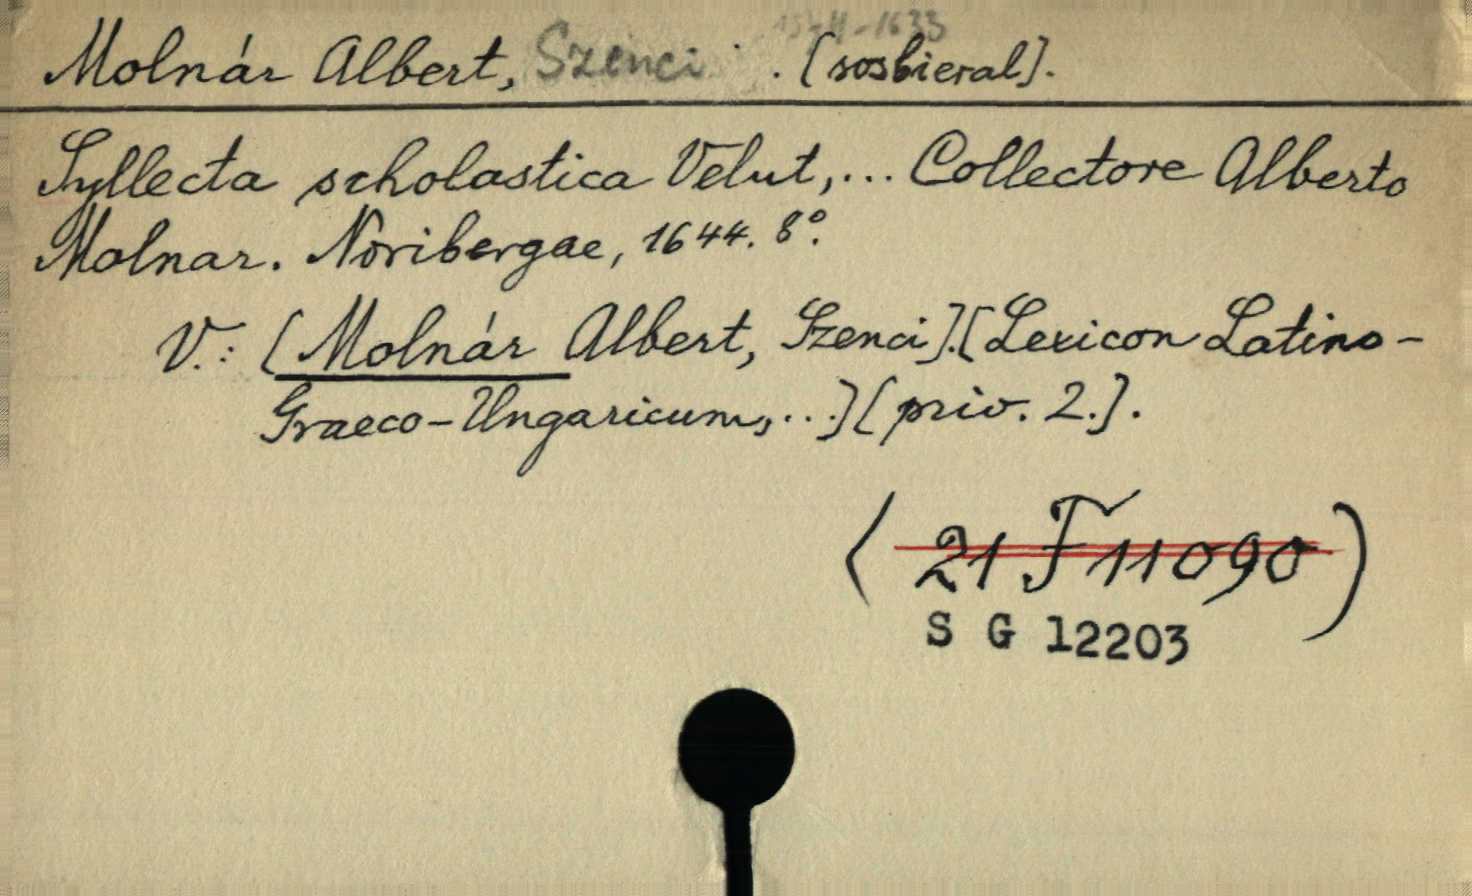 1574-1633
Molnár Albert, Szenci . [sosbieral].
Syllecta scholastica Velut,... Collectore Alberto
Molnar. Noribergae, 1644. 8°.
V.: [Molnár Albert, Szenci].[Lexicon Latino-
Graeco-Ungaricum,...][priv. 2.].
(21 F 11090)
S G 12203